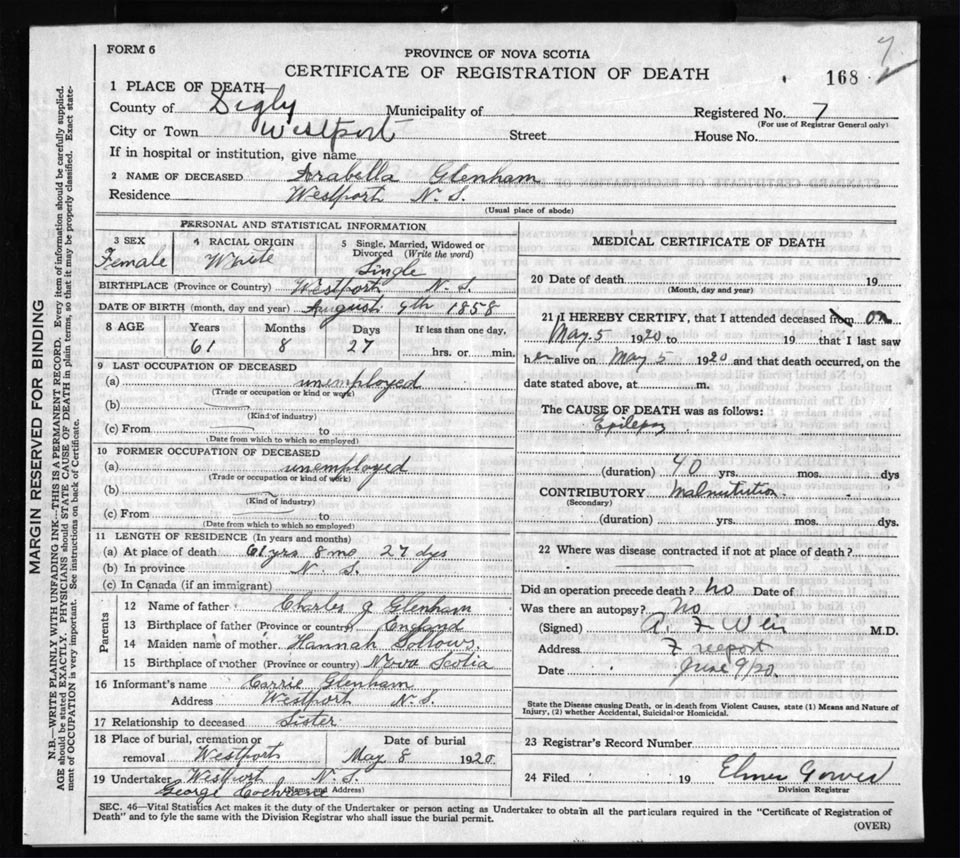 FORM 6
PROVINCE OF NOVA SCOTIA
CERTIFICATE OF REGISTRATION OF DEATH
168
7
1 PLACE OF DEATH
County of Digby Municipality of Registered No. 7
(For use of Registrar General only)
City or Town Westport Street House No.
If in hospital or institution, give name
2 NAME OF DECEASED Arabella Glenham
Residence Westport N. S.
(Usual place of abode)
PERSONAL AND STATISTICAL INFORMATION
3 SEX Female
4 RACIAL ORIGIN White
5 Single, Married, Widowed or Divorced (Write the word) Single
BIRTHPLACE (Province or Country) Westport N. S.
DATE OF BIRTH (month, day and year) August 9th 1858
8 AGE Years Months Days If less than one day,
61 8 27 hrs. or min.
9 LAST OCCUPATION OF DECEASED
(a) unemployed
(Trade or occupation or kind or work)
(b)
(Kind of industry)
(c) From to
(Date from which to which so employed)
10 FORMER OCCUPATION OF DECEASED
(a) unemployed
(Trade or occupation or kind of work)
(b)
(Kind of industry)
(c) From to
(Date from which to which so employed)
11 LENGTH OF RESIDENCE (In years and months)
(a) At place of death 61 yrs 8 mo 27 dys
(b) In province N. S.
(c) In Canada (if an immigrant)
Parents
12 Name of father Charles J Glenham
13 Birthplace of father (Province or country) England
14 Maiden name of mother. Hannah Sollows.
15 Birthplace of mother (Province or country) Nova Scotia
16 Informant's name Carrie Glenham
Address Westport N.S.
17 Relationship to deceased Sister
18 Place of burial, cremation or removal Westport
Date of burial May 8 1920
19 Undertaker Westport N. S.
George Cochrane
(Name and Address)
MEDICAL CERTIFICATE OF DEATH
20 Date of death 19
(Month, day and year)
21 I HEREBY CERTIFY, that I attended deceased from on
May 5 1920 to 19 that I last saw
her alive on May 5 1920 and that death occurred, on the
date stated above, at m.
The CAUSE OF DEATH was as follows:
Epilepsy
(duration) 40 yrs. mos. dys
CONTRIBUTORY Malnutrition
(Secondary)
(duration) yrs. mos. dys.
22 Where was disease contracted if not at place of death?
Did an operation precede death? No Date of
Was there an autopsy? No
(Signed) A. F Weir M.D.
Address Freeport
Date June 9/20
State the Disease causing Death, or in death from Violent Causes, state (1) Means and Nature of
Injury, (2) whether Accidental, Suicidal or Homicidal.
23 Registrar's Record Number
24 Filed 19 Elmer Gower
Division Registrar
SEC. 46—Vital Statistics Act makes it the duty of the Undertaker or person acting as Undertaker to obtain all the particulars required in the "Certificate of Registration of
Death" and to fyle the same with the Division Registrar who shall issue the burial permit.
(OVER)
MARGIN RESERVED FOR BINDING
N.B.—WRITE PLAINLY WITH UNFADING INK—THIS IS A PERMANENT RECORD. Every item of information should be carefully supplied.
AGE should be stated EXACTLY. PHYSICIANS should STATE CAUSE OF DEATH in plain terms, so that it may be properly classified. Exact state-
ment of OCCUPATION is very important. See instructions on back of Certificate.